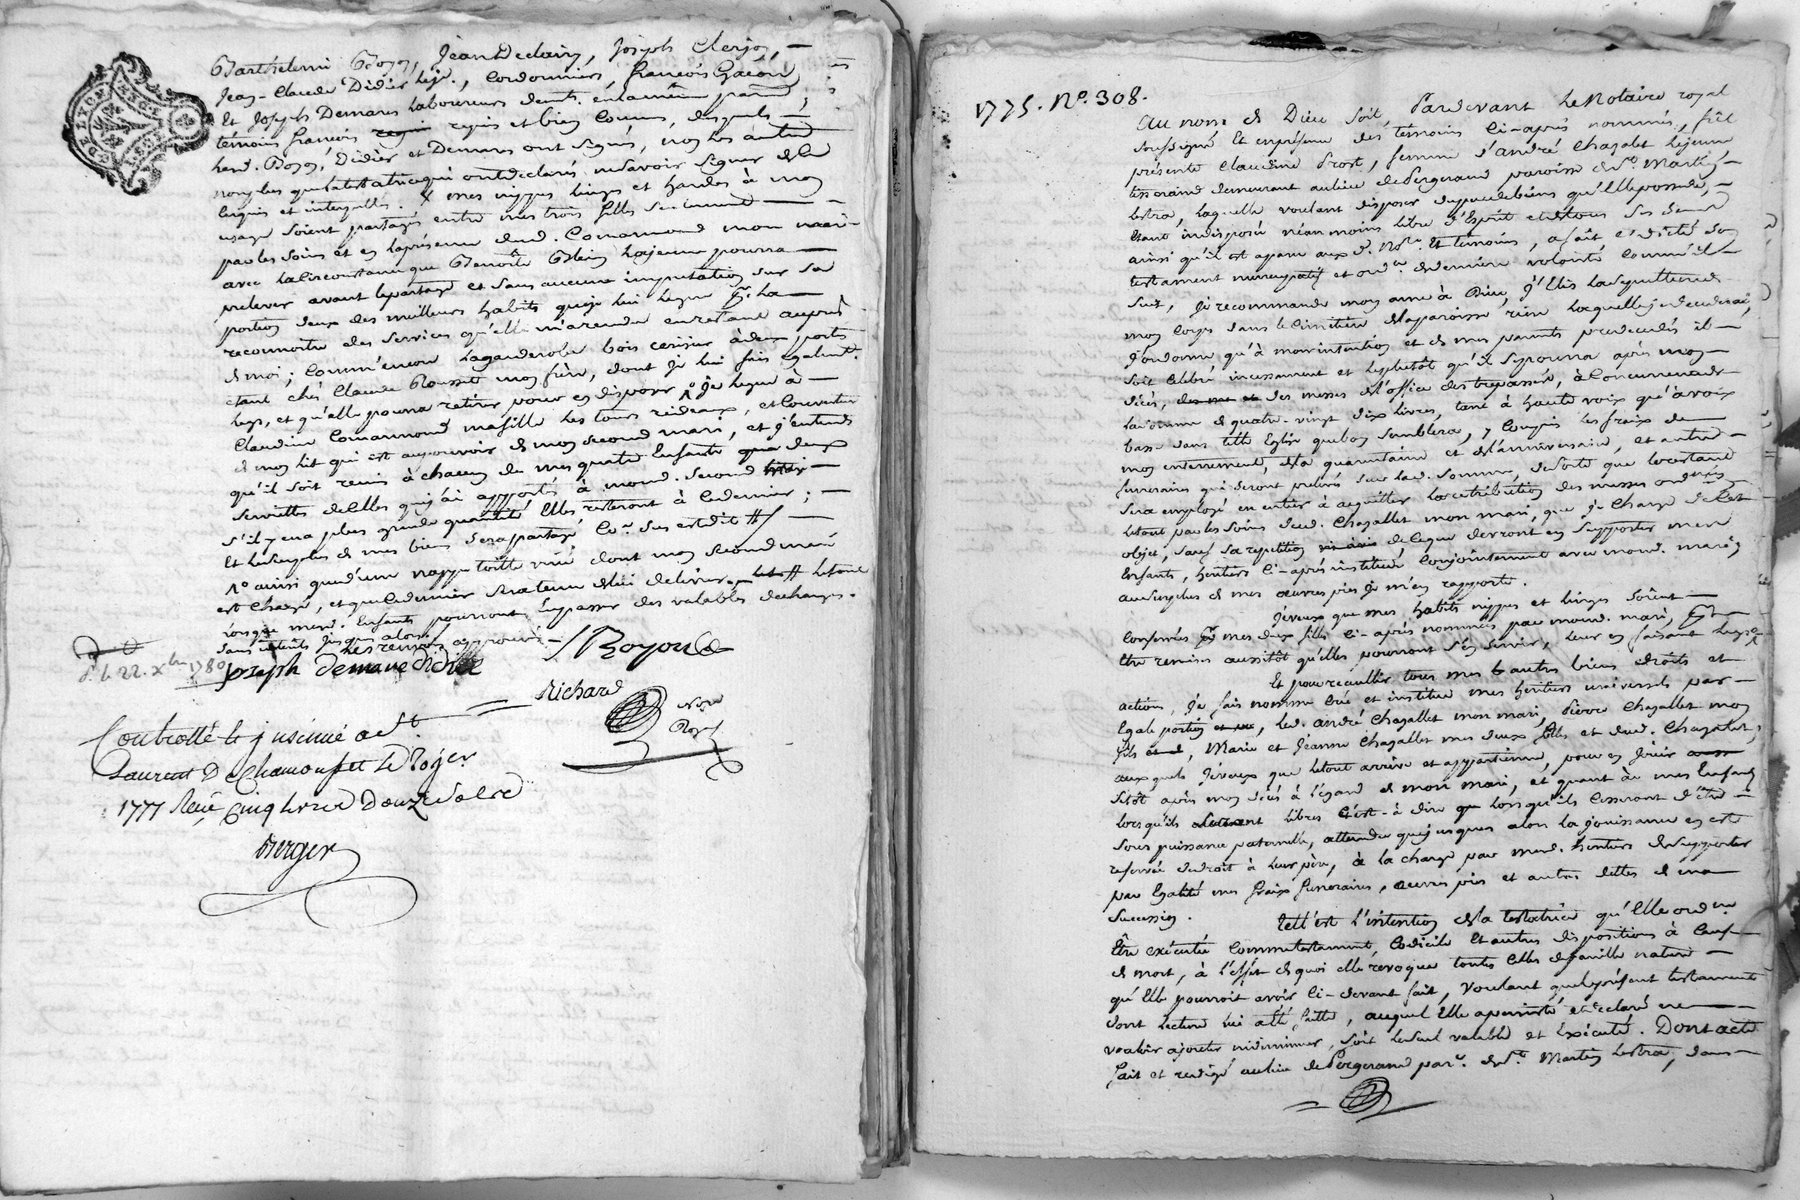 Barthelemi Boyer, Jean Declairy, Joseph Clerjon,
Jean-Claude Didier leje., Cordonniers, françois Gacon
Et Joseph Demare laboureurs demt. en la même paroisse,
témoins françois requis et bien Connus, desquels
lesd. Boyer, Didier et Demare ont signés, non les autres
non plus que la testatrice qui ont declarés ne savoir signer de ce
enquis et interpellés. X mes nippes linges et hardes à mon
usage soient partagés entre mes trois filles
par les soins et en la présence dud. Comarmond mon mari
avec la Circonstance que Benoîte Blein la jeune pourra
prelever avant le partage et sans aucune imputation sur sa
portion deux des meilleurs habits que je lui legue pr. la
reconnoitre des services qu'elle m'a rendu en restant auprès
de moi; Comm'encor la garderobe bois cerisier à deux portes
etant chés Claude Rousset mon frère, dont je lui fais egalemt.
legs, et qu'elle pourra retirer pour en disposer je legue à
Claudine Comarmond ma fille les tours rideaux, et Couverture
de mon lit qui est au pouvoir de mon second mari, et j'entends
qu'il soit remis à chacun de mes quatre Enfants deux
serviettes de celles que j'ai apportés à mond. second
s'il y en a plus grande quantité Elles resteront à ce dernier;
Et le surplus de mes biens sera partagé Ce. dessus est dit //
ainsi que d'une nappe toille unie dont mon second mari
est Chargé, et que ce dernier sera tenu de lui delivrer. le tout
lorsque mesd. Enfants pourront lui passer des valables decharges.
sans interêts jusques alors. les renvois approuvés
Dt. le 22. Xbre 1780
joseph demare didier
/Royon
Richard
Nore
Royl
Controllé & jnsinué a St.
Laurent De Chamousset Le
1777 Reçu Cinq livres Douze sols
Berger
1775. No. 308.
Au nom de Dieu soit, Pardevant le Notaire royal
soussigné Et en présence des temoins Ci-après nommés, fut
présente Claudine Prost, femme d'André Chazalet le jeune
tisserand demeurant au lieu de Pergerand paroisse de St. Martin
lestra, laquelle voulant disposer du peu de biens qu'Elle possede,
Etant indisposée néanmoins libre d'Esprit et de tous ses sens
ainsi qu'il est aparu aux d. Nore. Et témoins, a fait et dicté son
testament nuncupatif et ordre. de derniere volonté Comme il
suit, Je recommande mon ame à Dieu, j'Elis la sepulture de
mon Corps dans le Cimetière de la paroisse riere laquelle je decederai,
J'ordonne qu'à mon intention et de mes parents predecedés il
soit celebré incessament et le plutôt qu'il se pourra après mon
décès, des messes de l'office des trepassés, à Concurrence de
la somme de quatre-vingt dix livres, tant à haute voix qu'à voix
basse dans telle Eglise que bon semblera, y Compris les fraix de
mon enterrement, de la quarantaine et de l'anniversaire, et autres
funeraires qui seront prelevés sur lad. somme, desorte que le restant
sera employé en entier à acquitter la retribution des messes ordonnées
le tout par les soins dud. Chazallet mon mari, que je Charge de cet
objet, sauf sa repetition de ce que devront en supporter mesd
Enfants, heritiers Ci-après institués Conjointement avec mond. mari,
au surplus de mes œuvres pies je m'en rapporte.
Je veux que mes habits nippes et linges soient
Conservés pr mes deux filles Ci-après nommées par mond. mari, pr.
Etre remises aussitôt qu'elles pourront s'en servir, leur en faisant legs.
Et pour recueillir tous mes autres biens droits et
actions, Je fais nomme Crée et institue mes heritiers universels par
Egale portion, led. André Chazallet mon mari, Pierre Chazallet mon
fils, Marie et Jeanne Chazallet mes deux filles et dud. Chazallet,
auxquels J'eveux que le tout arrive et appartienne, pour en jouir
sitôt après mon décès à l'égard de mon mari, et quant à mes Enfants
lorsqu'ils seront libres C'est-à-dire que lorsqu'ils cesseront d'être
sous puissance paternelle, attendu que jusques alors la jouissance en est
reservée de droit à leur père, à la charge par mesd. heritiers de supporter
par Egalité mes fraix funeraires, œuvres pies et autres dettes de ma
succession. Tell'est l'intention de la testatrice qu'Elle ordne
Etre exécutée Comme testament, Codicile Et autres dispositions à Cause
de mort, à l'effet de quoi elle révoque toutes Celles de pareille nature
qu'Elle pourroit avoir Ci-devant fait, voulant que le présent testament
dont lecture lui a été faitte, auquel Elle a persisté et déclaré ne
vouloir ajouter ni diminuer, soit le seul valable et Exécuté. Dont acte
fait et redigé au lieu de Pergerand parse. de St. Martin lestra, dans